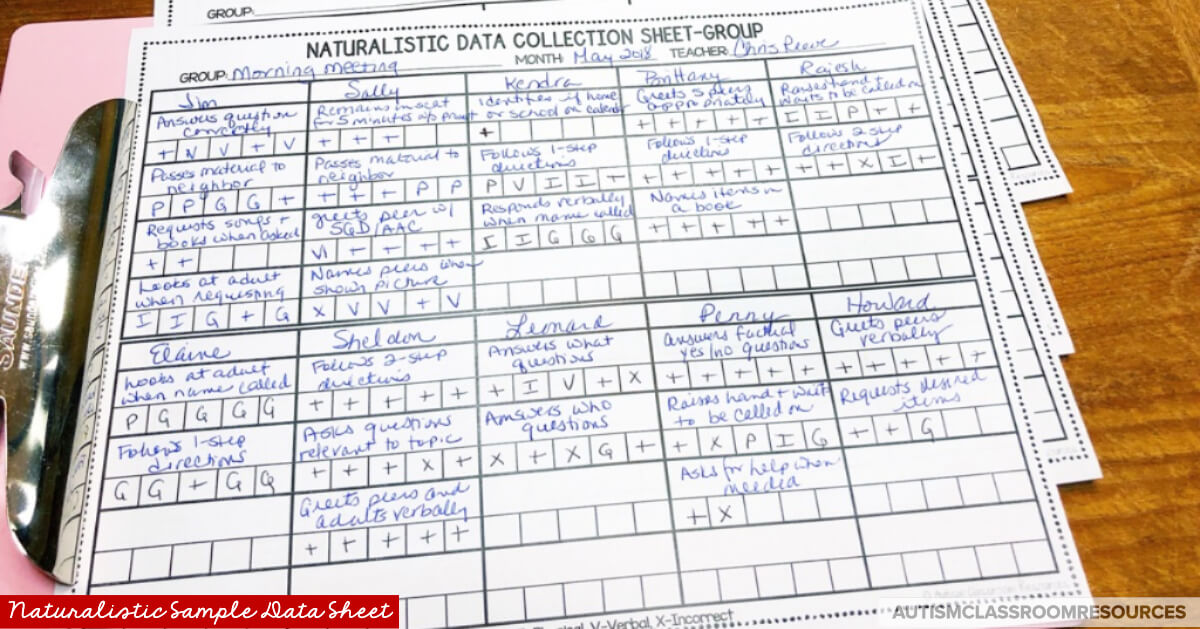 GROUP:
NATURALISTIC DATA COLLECTION SHEET-GROUP
GROUP: Morning meeting MONTH: May 2018 TEACHER: Chris Reeve
Jim
Answers question
correctly
+ V V + V
Passes material to
neighbor
P P G G +
Requests songs +
books when asked
+ +
Looks at adult
when requesting
I I G + G
Sally
Remains in seat
for 5 minutes w/o prompt
+ + +
Passes material to
neighbor
+ + + P P
greets peer w/
SGD/AAC
+ + + +
Names peers when
shown picture
X V V + V
Kendra
Identifies if home
or school on calendar
+
Follows 1-step
directions
P V I I +
Responds verbally
when name called
I I G G G
Brittany
Greets
appropriately
+ + + + +
Follows 1-step
directions
+ + + + +
Names items in
a book
+ + + + +
Rajesh
Raises hand +
waits to be called on
I I P + +
Follows 2-step
directions
+ + X I +
Elaine
Looks at adult
when name called
P G G G G
Follows 1-step
directions
G G + G G
Sheldon
Follows 2-step
directions
+ + + + +
Asks questions
relevant to topic
+ + + X +
Greets peers and
adults verbally
+ + + + +
Leonard
Answers what
questions
+ I V + X
Answers who
questions
X + X G +
Penny
answers factual
yes/no questions
+ + + + +
Raises hand + waits
to be called on
+ X P I G
Asks for help when
needed
+ X
Howard
Greets peers
verbally
+ + + + +
Requests desired
items
+ + G
V-Verbal, X-Incorrect
Naturalistic Sample Data Sheet
AUTISMCLASSROOMRESOURCES